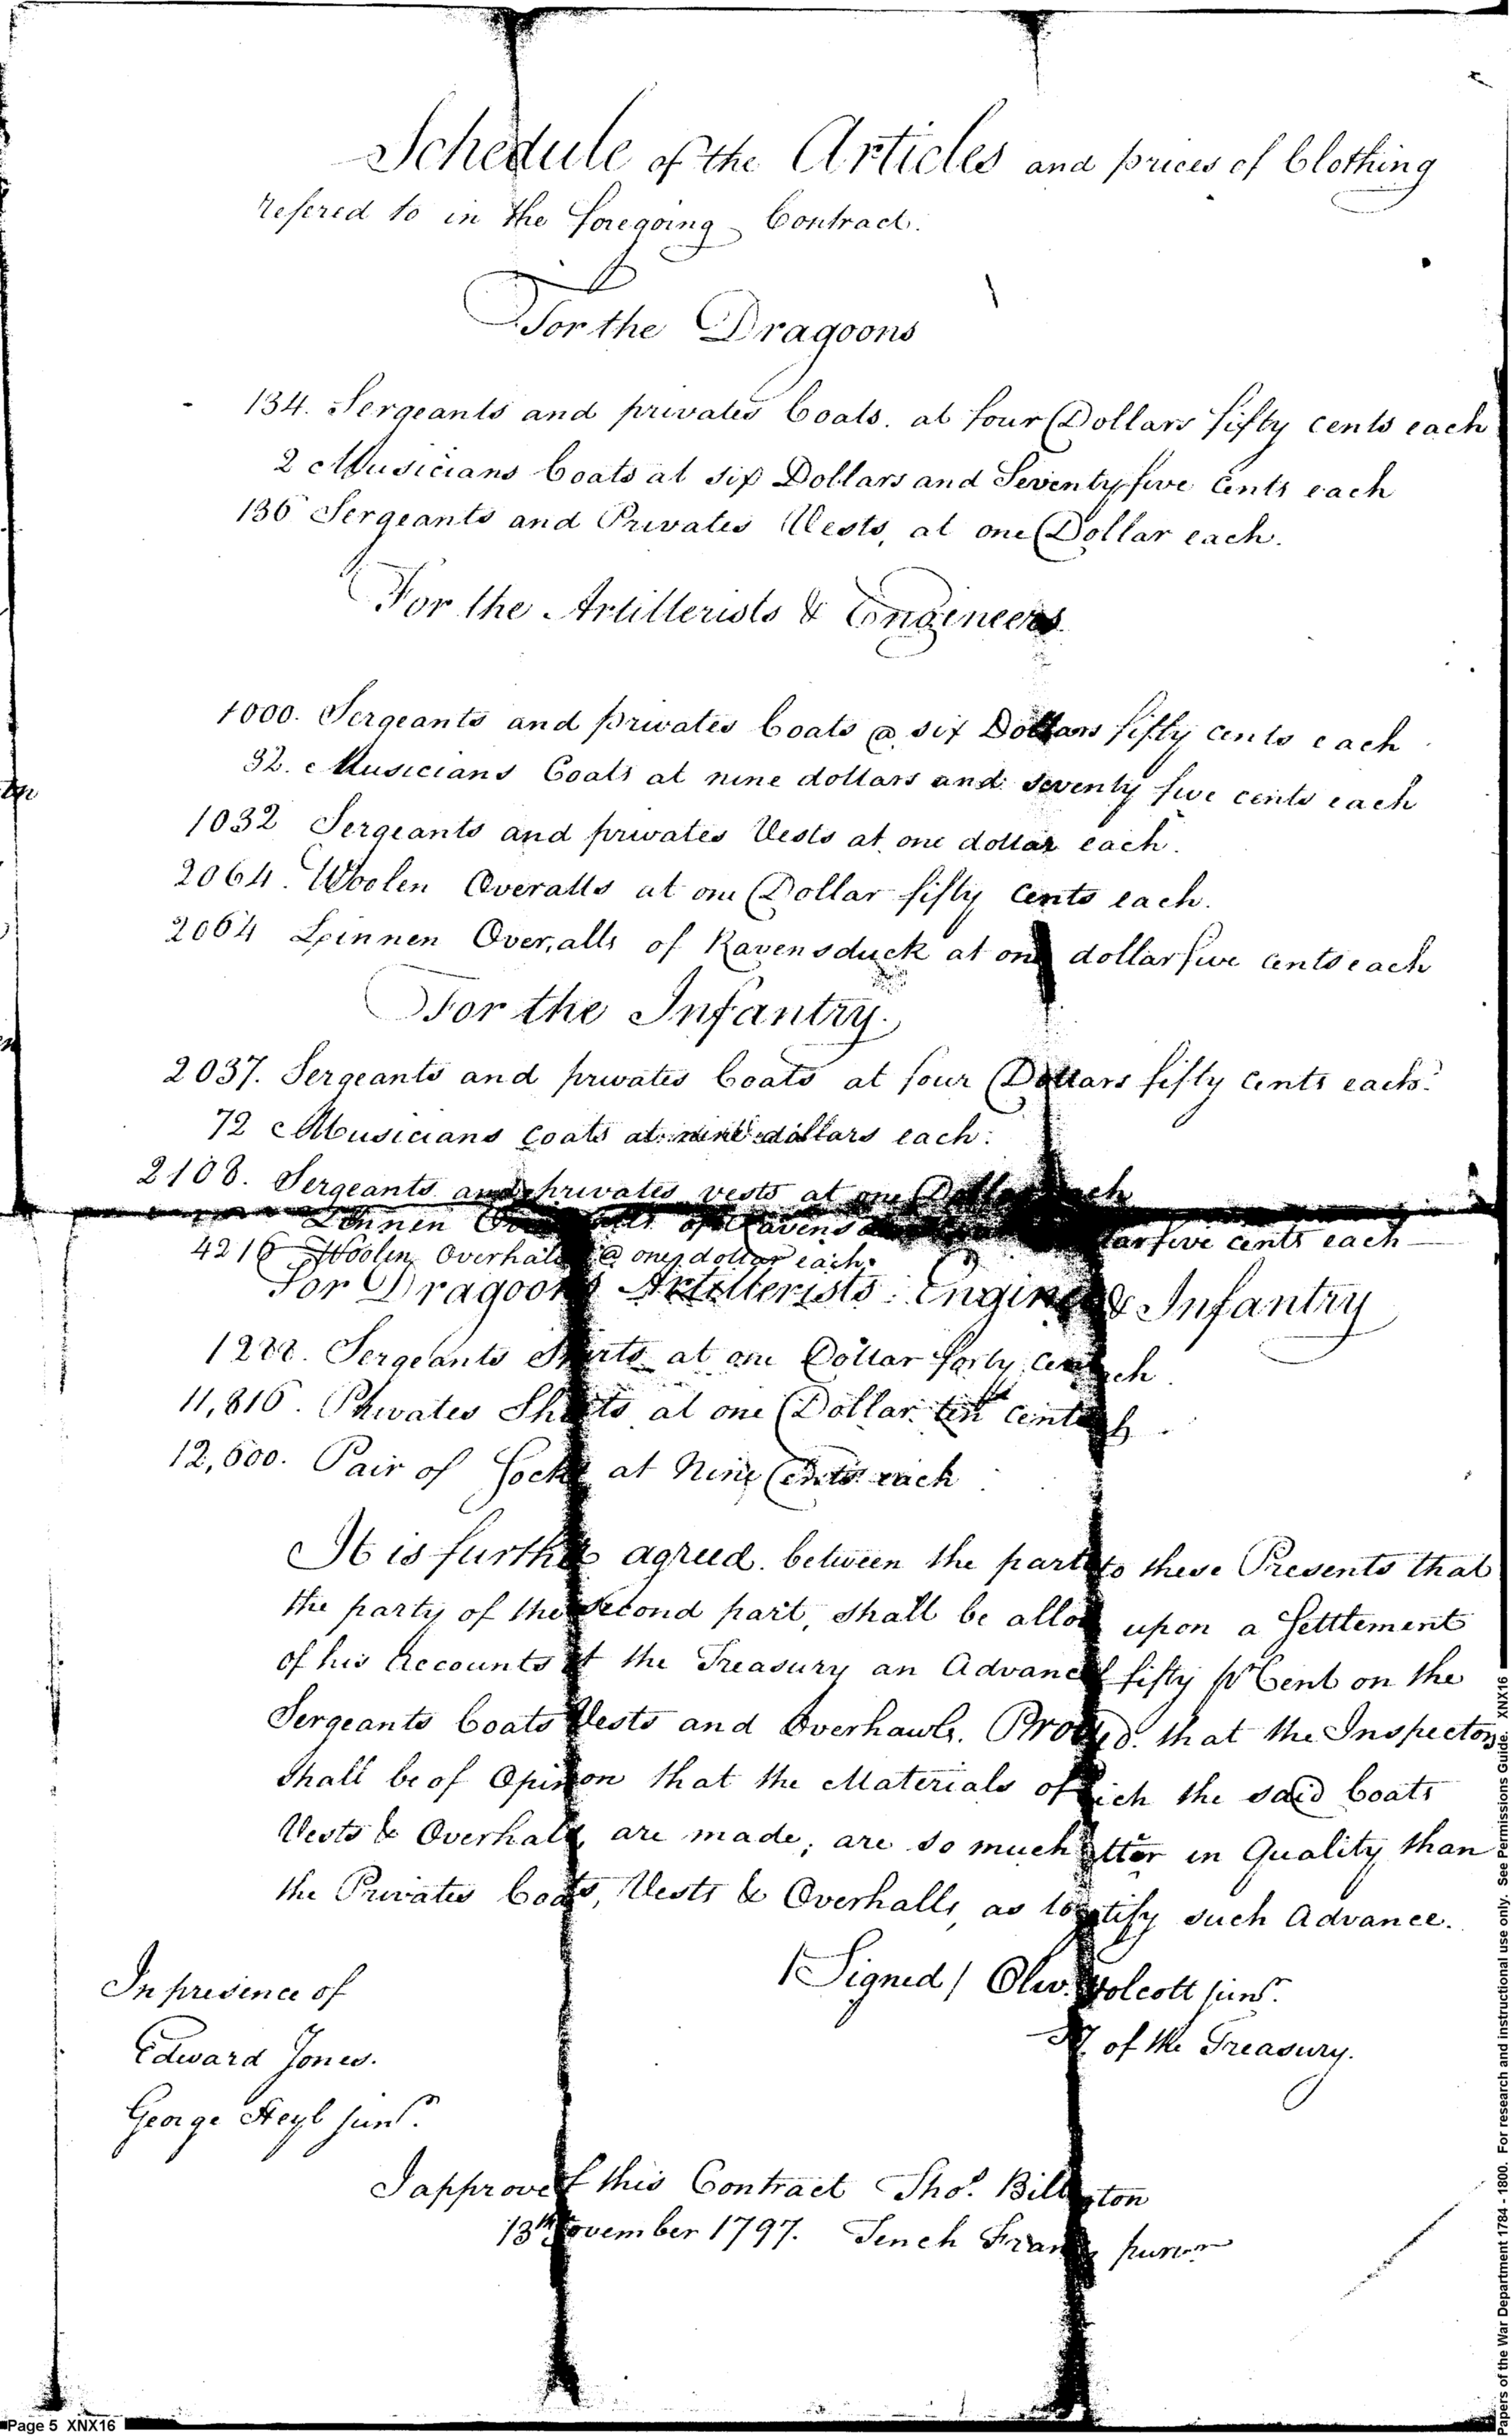 Schedule of the Articles and prices of Clothing
refered to in the foregoing Contract.
For the Dragoons
134. Sergeants and privates Coats. at four Dollars fifty cents each
2 Musicians Coats at six Dollars and Seventy five Cents each
136 Sergeants and Privates Vests, at one Dollar each.
For the Artillerists & Engineers
1000. Sergeants and privates Coats @ six Dollars fifty cents each
32. Musicians Coats at nine dollars and seventy five cents each
1032 Sergeants and privates Vests at one dollar each.
2064. Woolen Overalls at one Dollar fifty Cents each.
2064 Linnen Over,alls of Ravensduck at one dollar five cents each
For the Infantry.
2037. Sergeants and privates Coats at four Dollars fifty Cents each.
72 Musicians Coats at nine dollars each.
2108. Sergeants and privates vests at one Dollar each
Linnen of Ravens five cents each
4216 Woolen Overhalls @ one dollar each.
For Dragoons Artillerists Engine & Infantry
Sergeants Shirts at one Dollar forty Cen ch
11,816. Privates Shirts at one Dollar ten cents
12,600. Pair of Socks at Nine Cents each
It is further agreed between the part to these Presents that
the party of the Second part, shall be allo upon a Settlement
of his Accounts at the Treasury an Advance of fifty pr Cent on the
Sergeants Coats Vests and Overhawls. Provided. that the Inspectors
shall be of Opinion that the Materials of ich the said Coats
Vests & Overhalls, are made, are so much better in Quality than
the Privates Coats, Vests & Overhalls, as to tify such Advance.
/Signed/ Oliv. Wolcott junr.
In presence of
Sy. of the Treasury.
Edward Jones.
George Heyl junr.
I approve of this Contract Thos. Billington
13th November 1797. Tench Fran purvr
Page 5 XNX16
Papers of the War Department 1784 - 1800. For research and instructional use only. See Permissions Guide. XNX16